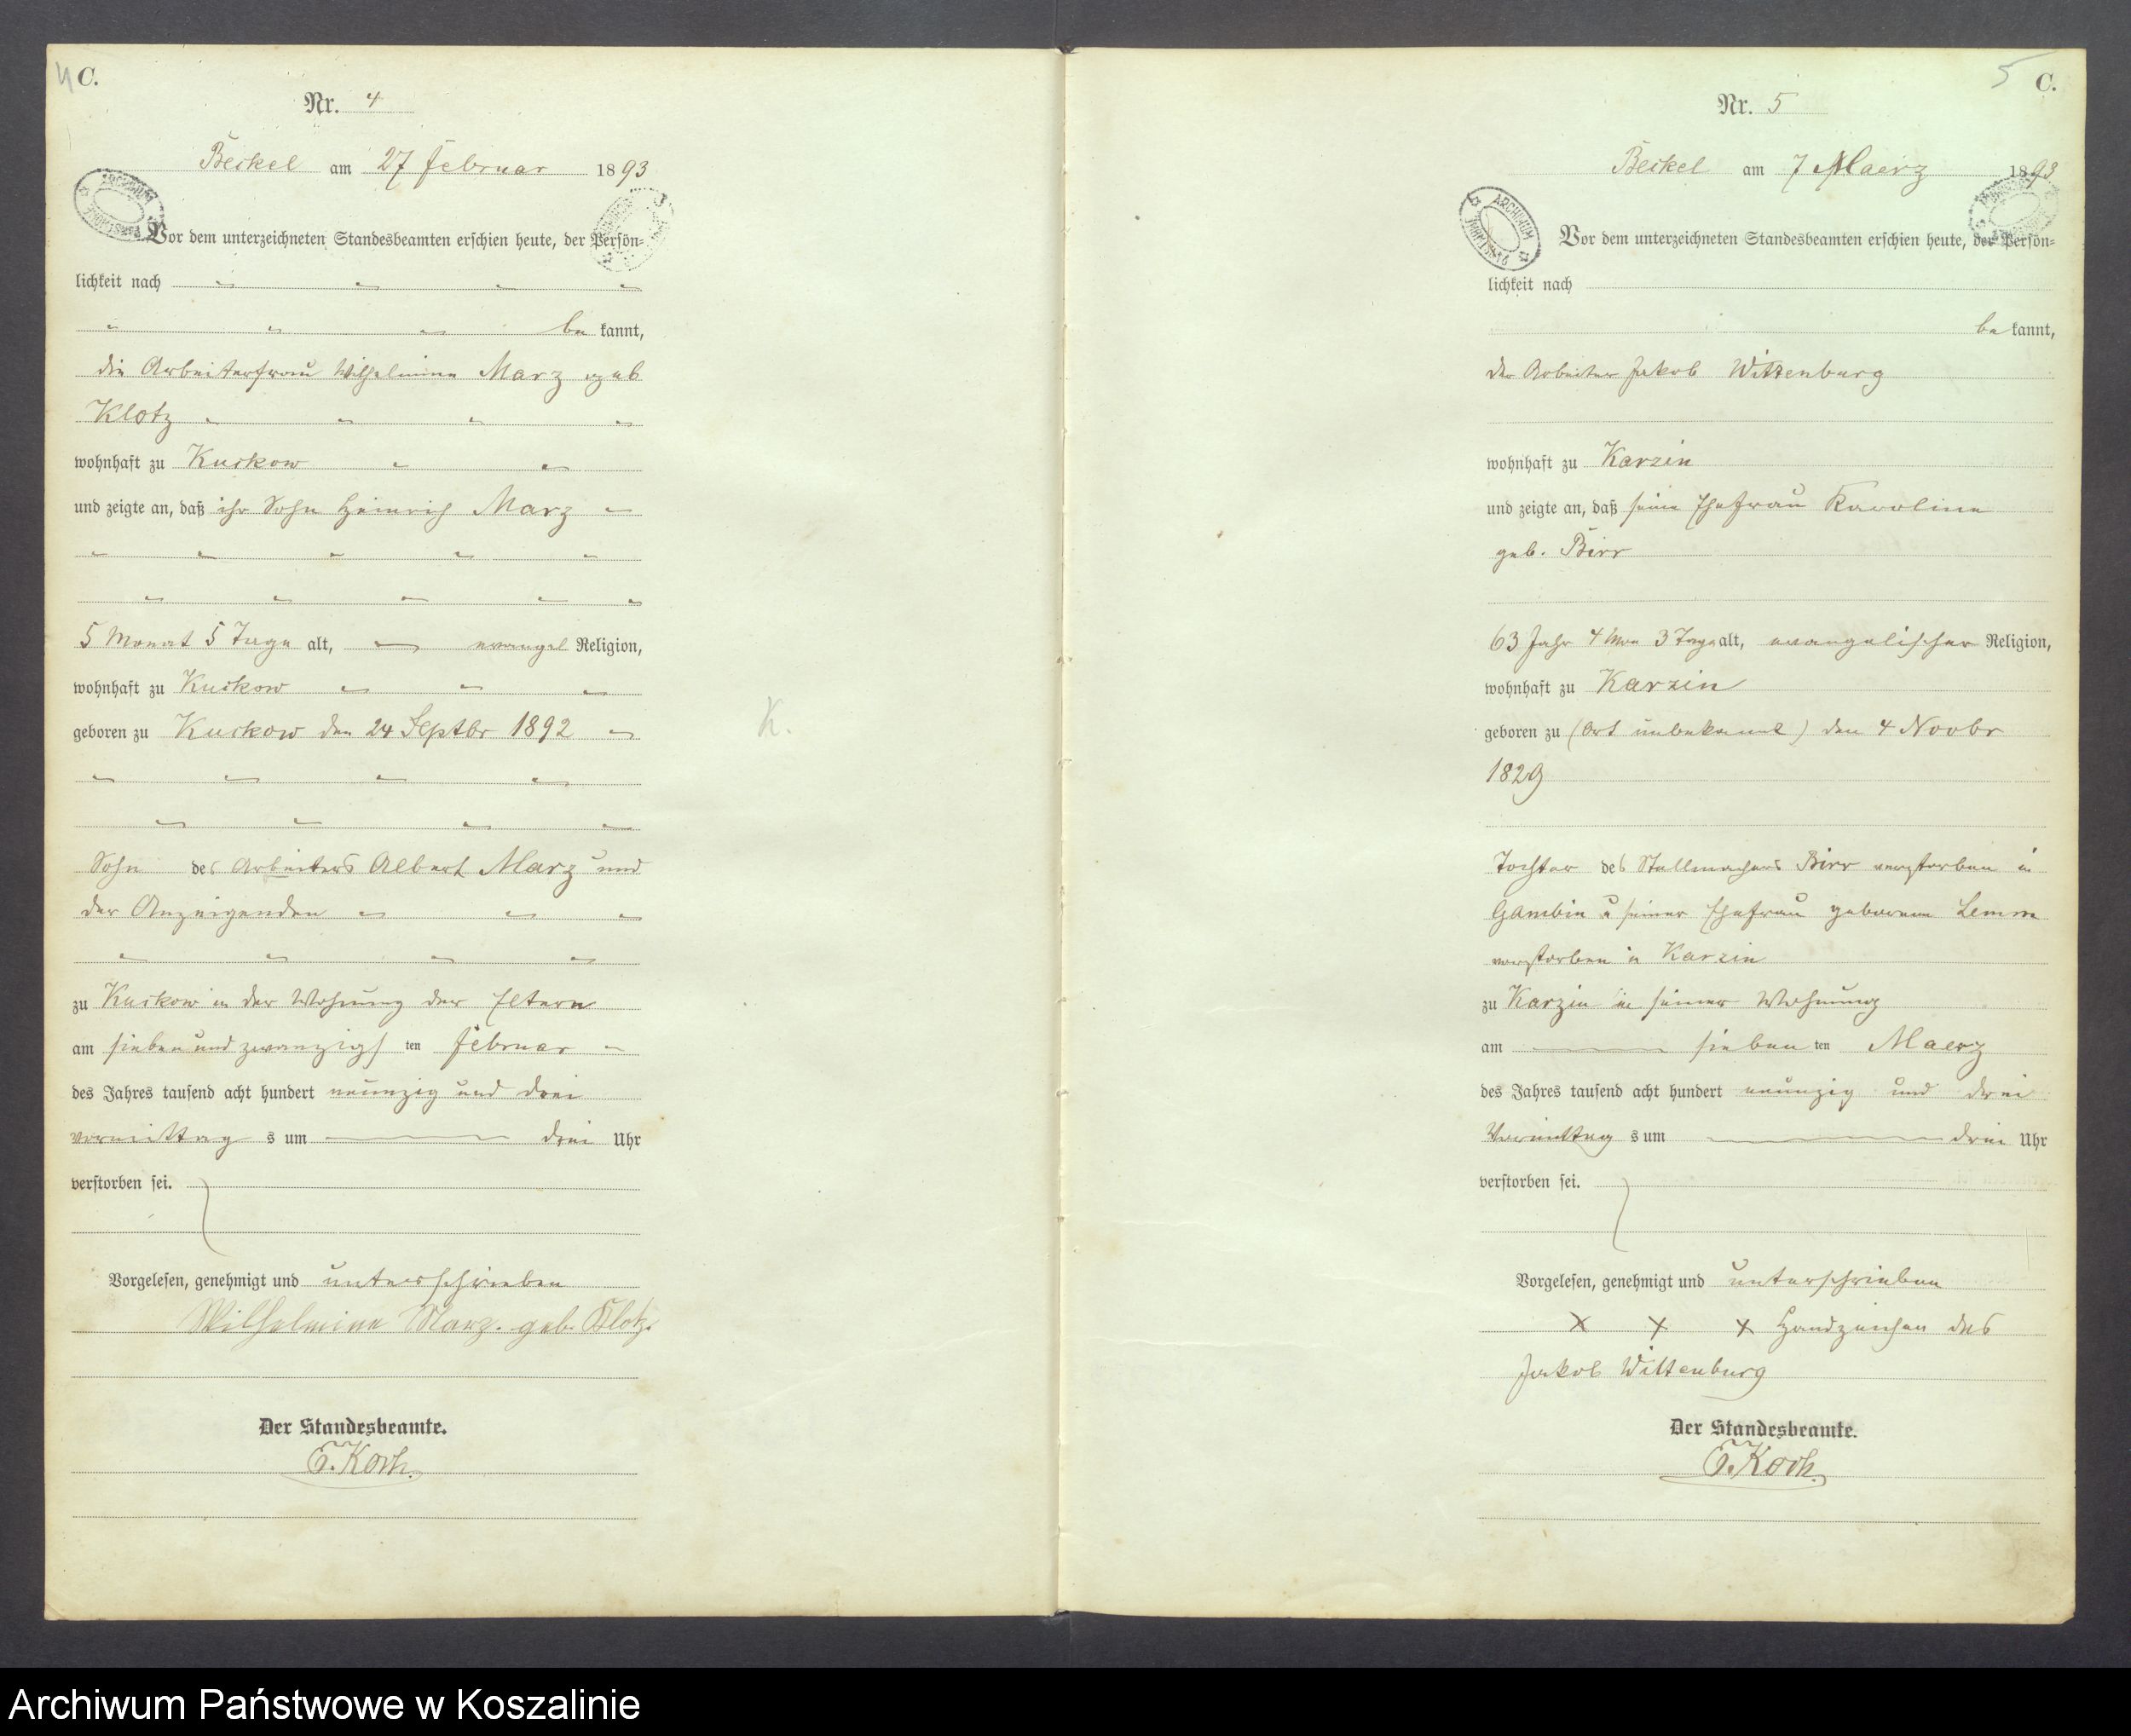 4 C.
Nr. 4
Beckel am 27 Februar 1893
Vor dem unterzeichneten Standesbeamten erschien heute, der Persön-
lichkeit nach
be kannt,
die Arbeiterfrau Wilhelmine Marz geb
Klotz
wohnhaft zu Kuckow
und zeigte an, daß ihr Sohn Heinrich Marz
5 Monat 5 Tage alt, evangel Religion,
wohnhaft zu Kuckow
geboren zu Kuckow den 24 Septbr 1892
K.
Sohn des Arbeiters Albert Marz und
der Anzeigenden
zu Kuckow in der Wohnung der Eltern
am sieben und zwanzigs ten Februar
des Jahres tausend acht hundert neunzig und drei
vormittag s um drei Uhr
verstorben sei.
Vorgelesen, genehmigt und unterschrieben
Wilhelmine Marz. geb. Klotz.
Der Standesbeamte.
E. Koch.
5 C.
Nr. 5
Beckel am 7 Maerz 1893
ARCHIWUM
Vor dem unterzeichneten Standesbeamten erschien heute, der Persön-
lichkeit nach
be kannt,
der Arbeiter Jakob Wittenburg
wohnhaft zu Karzin
und zeigte an, daß seine Ehefrau Karoline
geb. Birr
63 Jahr 4 Mon 3 Tage alt, evangelischer Religion,
wohnhaft zu Karzin
geboren zu (Ort unbekannt) den 4 Novbr
1829
Tochter des Stellmachers Birr verstorben in
Gambin u seiner Ehefrau geborene Lemm
verstorben in Karzin
zu Karzin in seiner Wohnung
am sieben ten Maerz
des Jahres tausend acht hundert neunzig und drei
Vormittag s um drei Uhr
verstorben sei.
Vorgelesen, genehmigt und unterschrieben
x x x Handzeichen des
Jakob Wittenburg
Der Standesbeamte.
E. Koch.
Archiwum Państwowe w Koszalinie